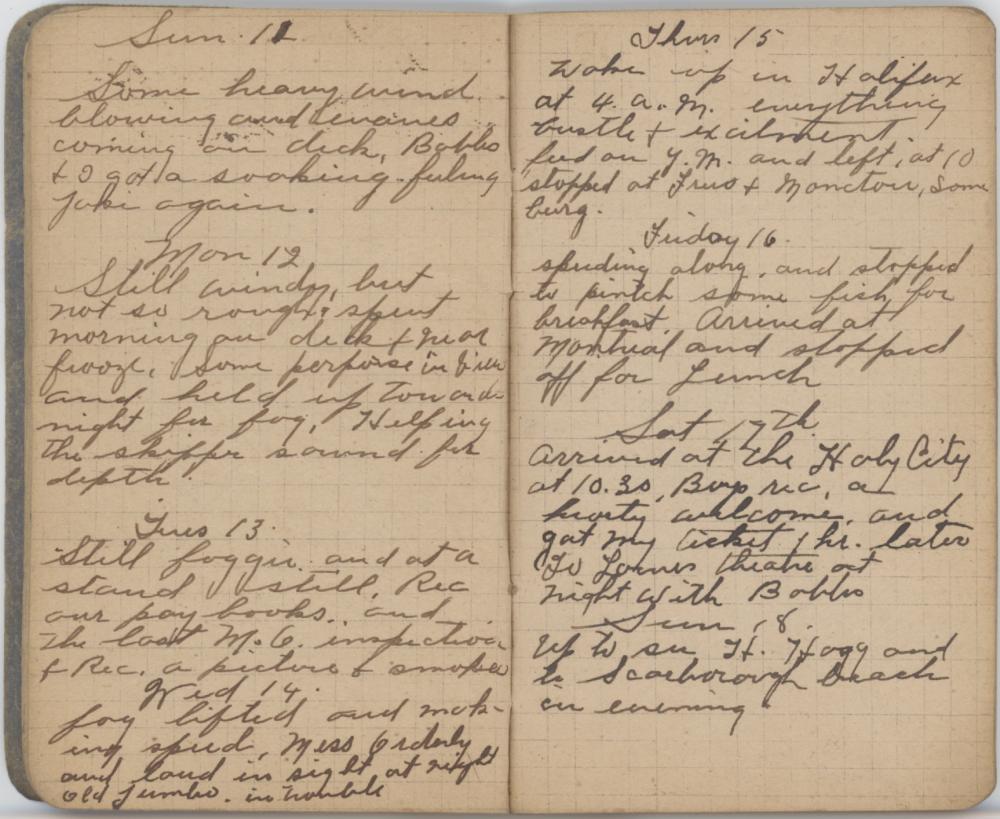 Sun. 11
Some heavy wind
blowing and waves
coming on deck, Bobbs
& I got a soaking. feeling
Jake again.
Mon 12
Still windy, but
not so rough, spent
morning on deck & near
frooze, Some porpoise in view
and held up towards
night for fog, Helping
the skipper sound for
depth.
Tues 13.
Still foggie and at a
stand still, Rec
our pay books. and
the last M.O. inspection
& Rec. a picture & smokes
Wed 14.
fog lifted and mak-
ing speed, Mess Orderly
and land in sight at night
Old Jumbo. in trouble
Thurs 15
Woke up in Halifax
at 4. a. m. everything
bustle & excitment.
feed on Y.M. and left, at 10
stopped at Truro & Moncton, Some
burg.
Friday 16.
speeding along, and stopped
to pintch some fish for
breakfast. Arrived at
Montreal and stopped
off for Lunch
Sat 17th
Arrived at the Holy City
at 10.30, Boys rec, a
hearty welcome, and
got my ticket 1 hr. later
To Loews theatre at
night with Bobbs
Sun 18.
Up to see H. Hogg and
to Scarborough beach
in evening.